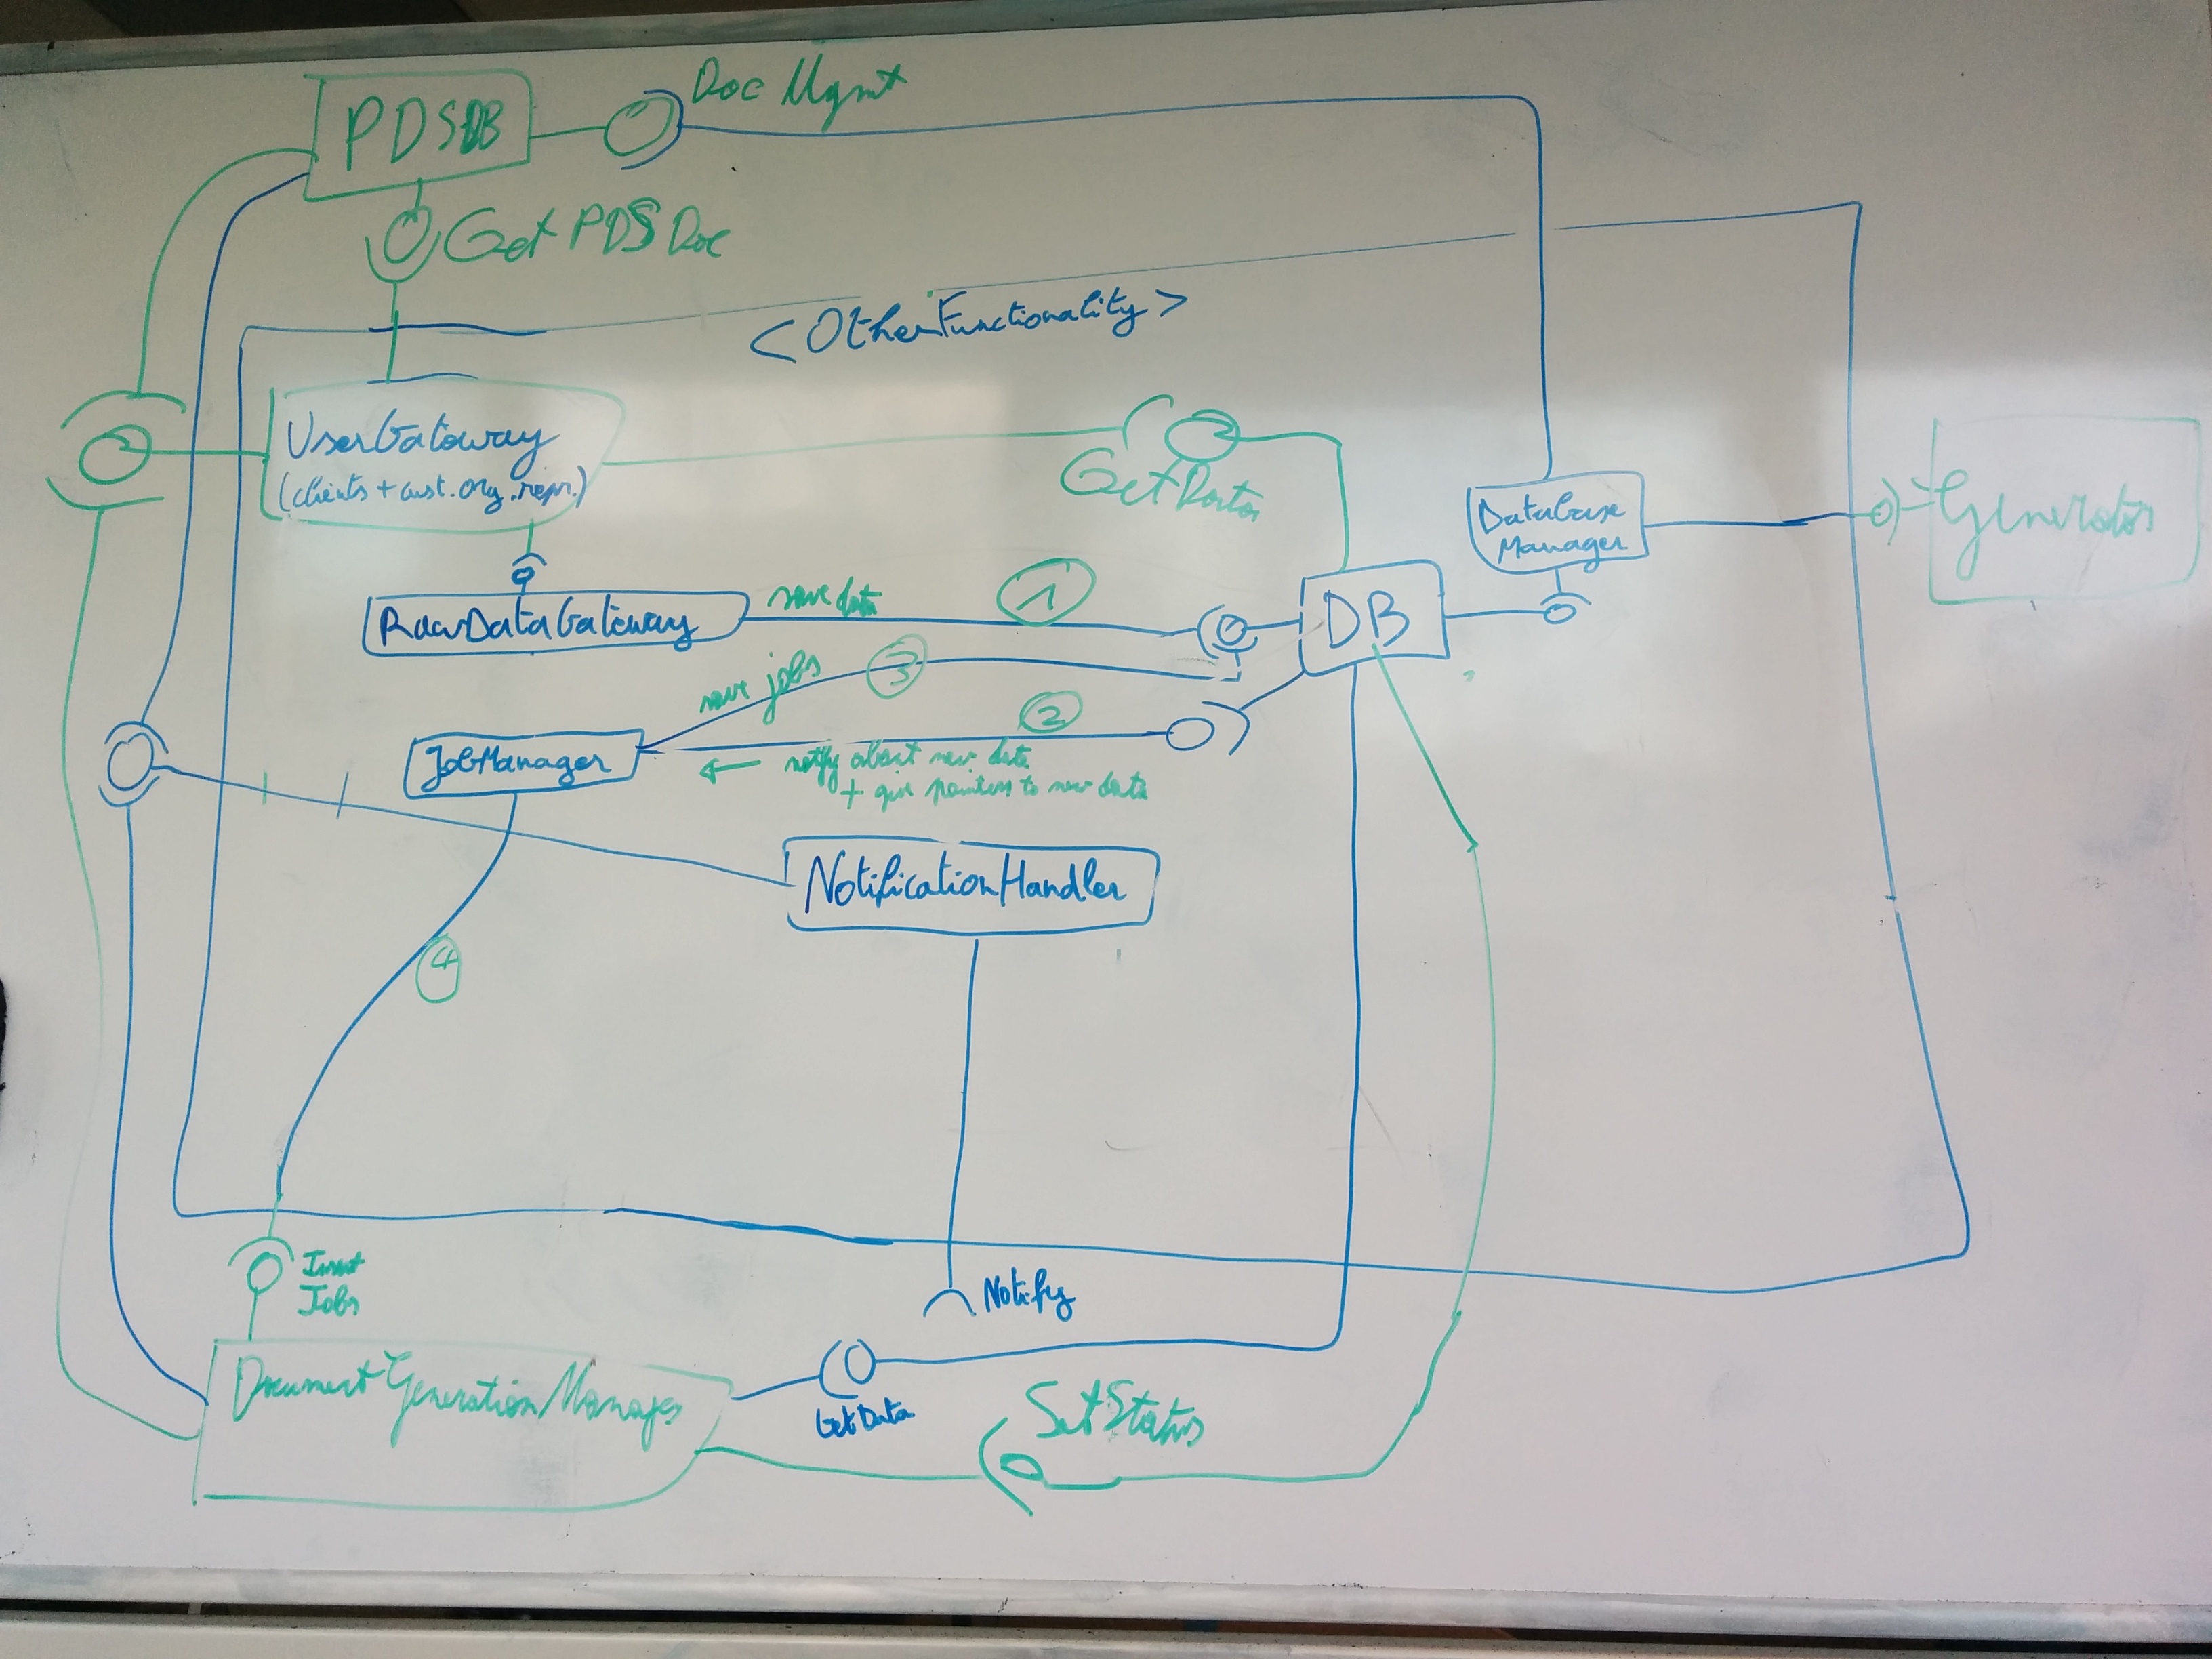 Doc Mgmt
PDSDB
Get PDS Doc
<OtherFunctionality>
UserGateway
(clients + cust. org. repr.)
Get Data
Database
Manager
Generator
save data
1
RawDataGateway
DB
save jobs
3
2
JobManager
notify about new data
+ give pointers to new data
NotificationHandler
4
Insert
Jobs
Notify
DocumentGenerationManager
GetData
SetStatus